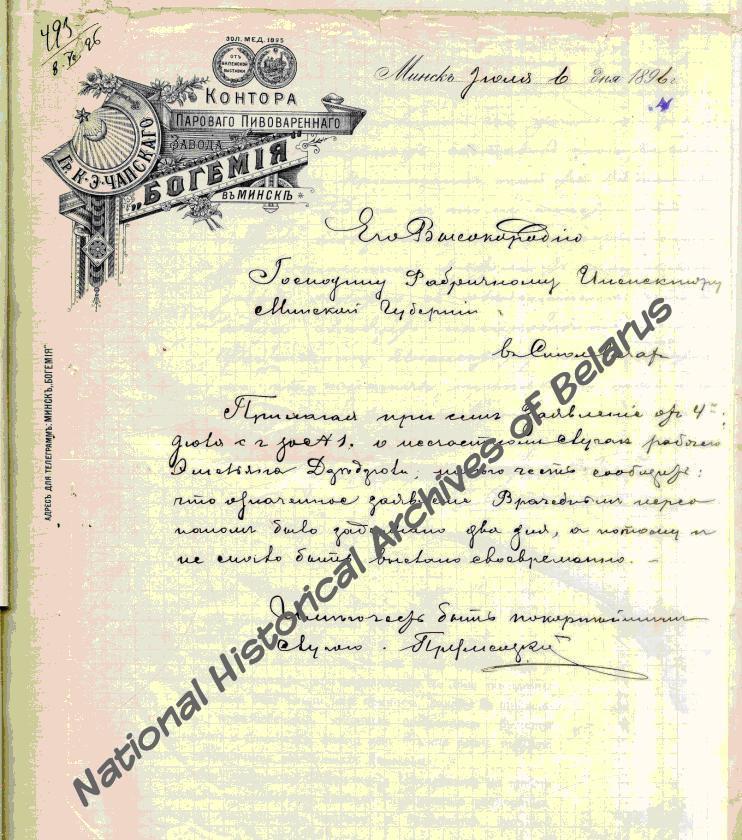 493
8. VII. 96
ЗОЛ. МЕД. 1895
ОТЪ
ВЫСТАВКИ
КОНТОРА
ПАРОВАГО ПИВОВАРЕННАГО
ЗАВОДА
ГР. К. Э. ЧАПСКАГО
„БОГЕМІЯ"
ВЪ МИНСКѢ
Минскъ Іюля 6 дня 1896 г.
Его Высокородію
Господину Фабричному Инспектору
Минской Губерніи
АДРЕСЪ ДЛЯ ТЕЛЕГРАММЪ: МИНСКЪ, БОГЕМІЯ"
Прилагая при семъ Заявленіе отъ 4го
с. г. за № 1. о несчастномъ случаѣ рабочаго
имѣю честь сообщить:
что означенное заявленіе Врачебнымъ
было два дня, а потому и
не могло быть выслано своевременно. –
Имѣю честь быть покорнѣйшимъ
слугою.
National Historical Archives of Belarus